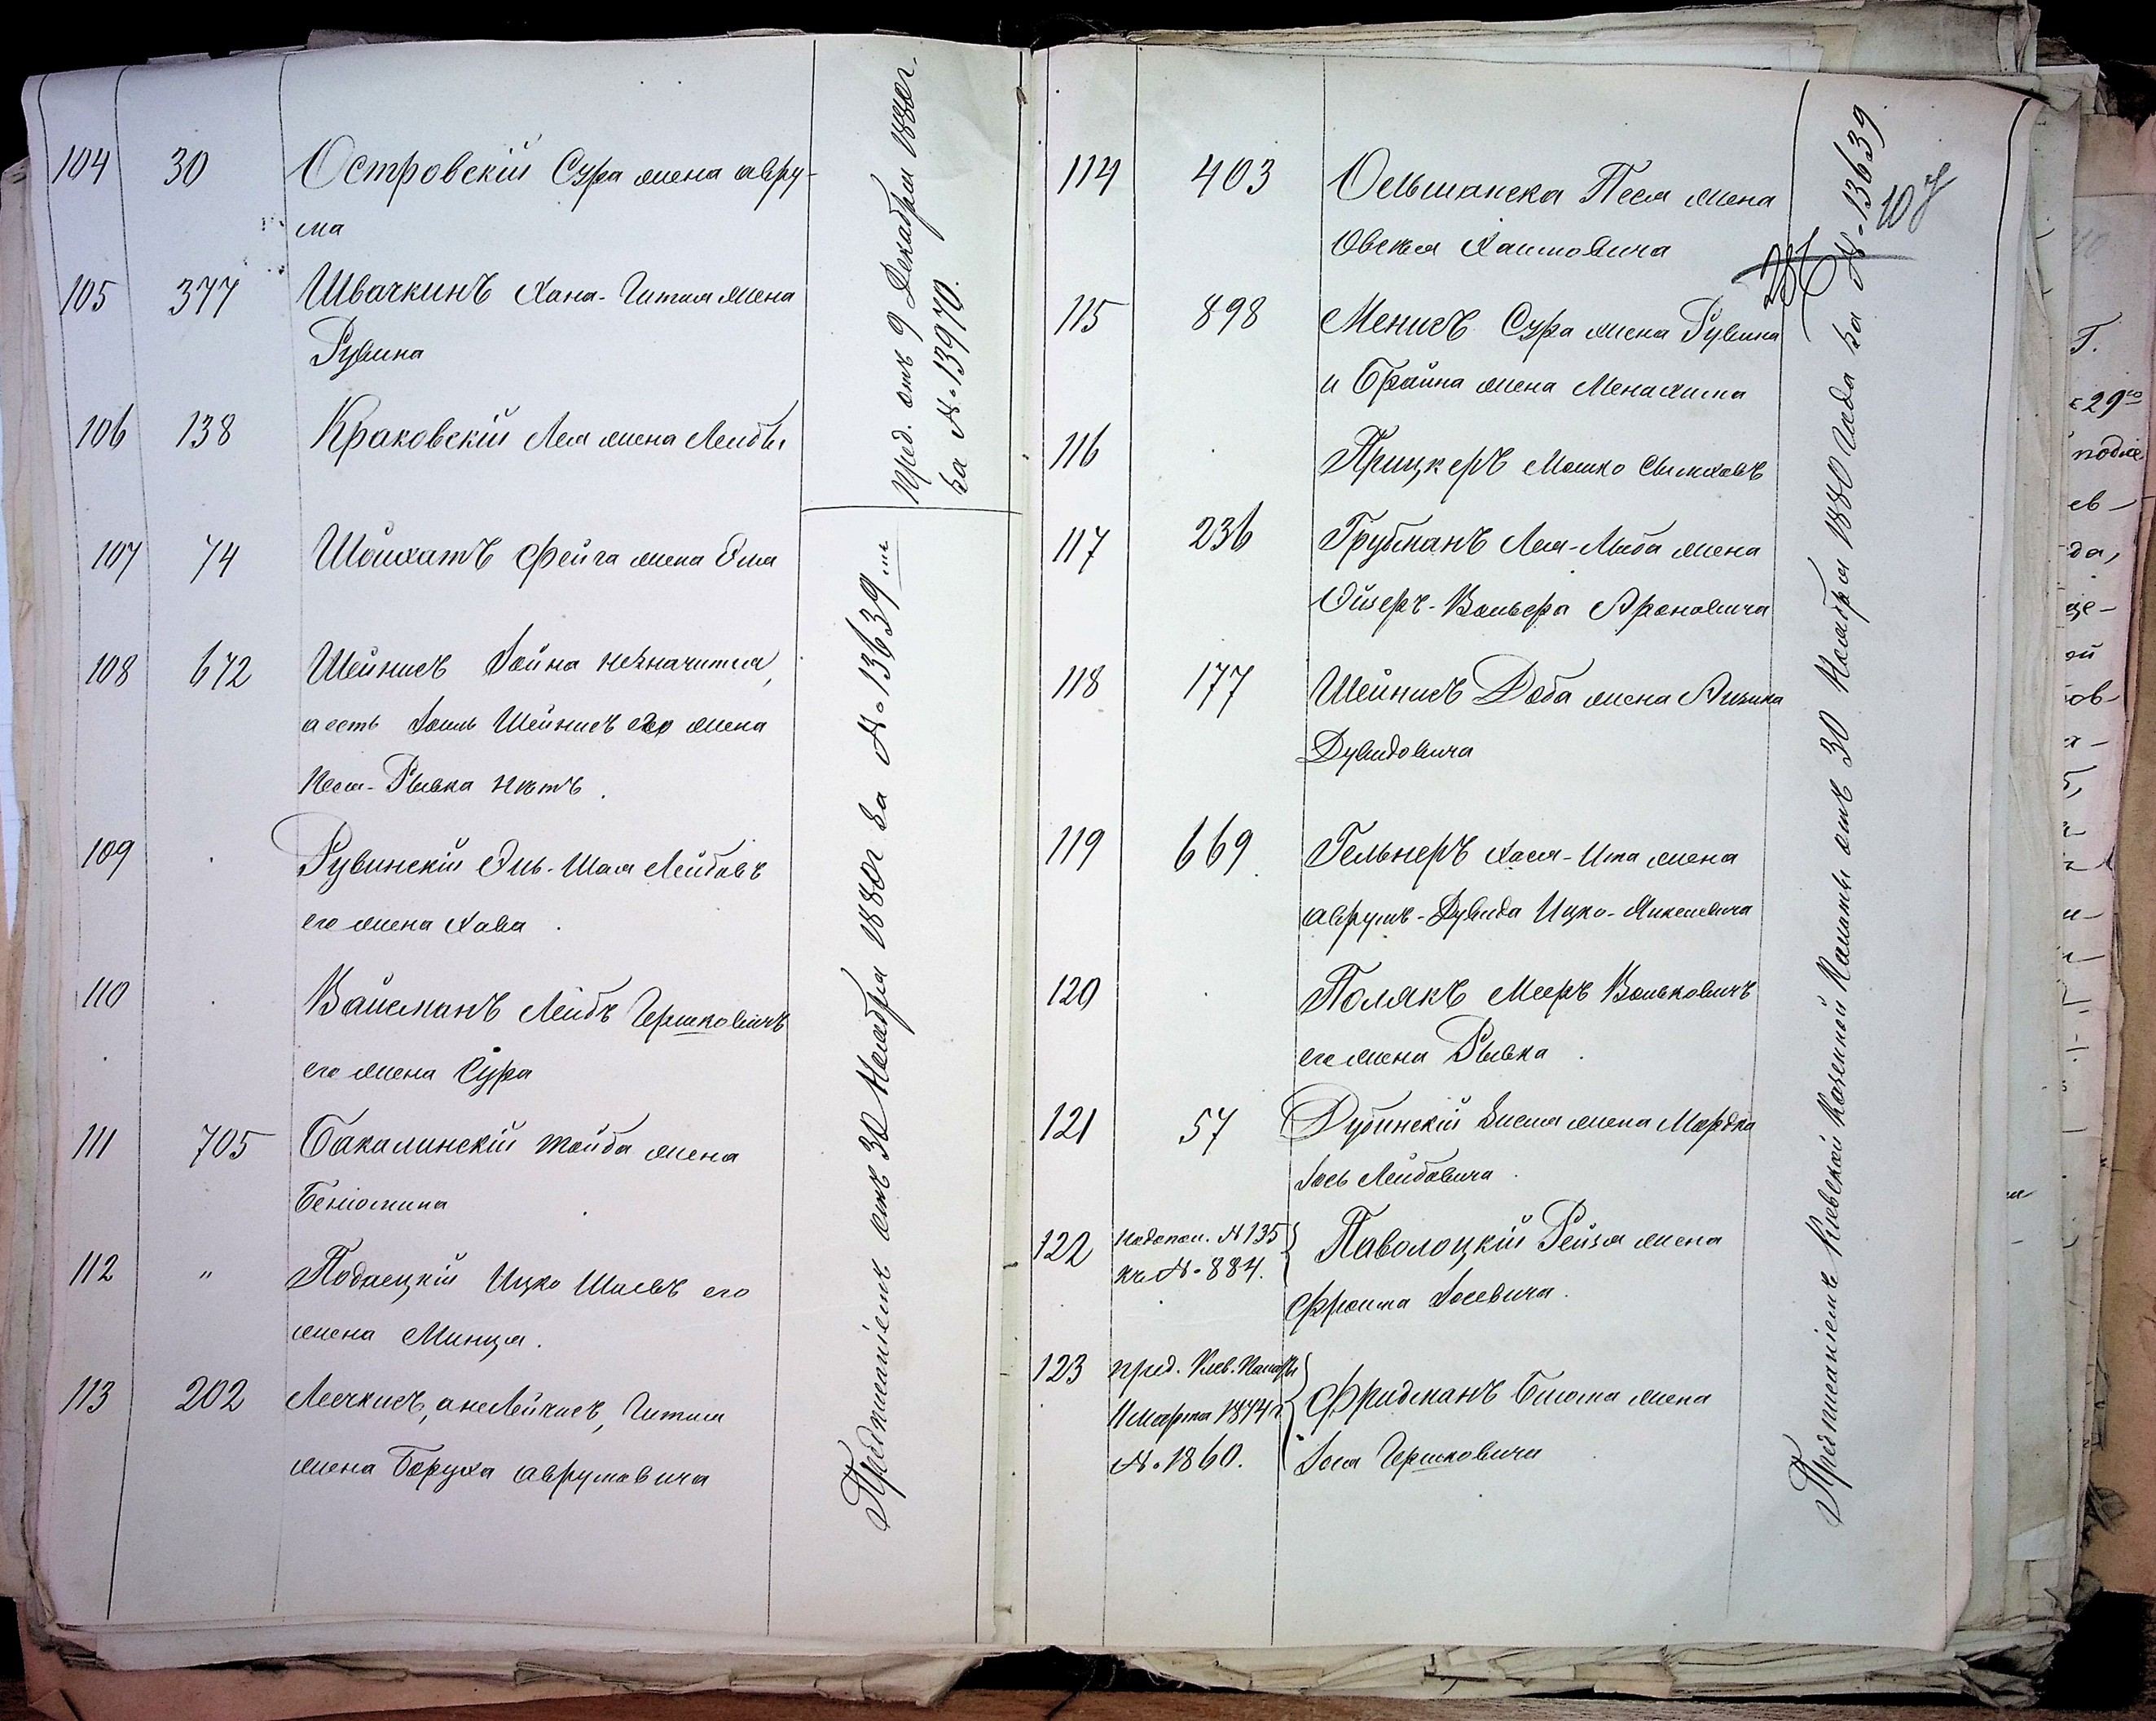 104 30 Островскій Сура жена Авру-
ма
105 377 Швачкинъ Хана-Гитля жена
Рувина
106 138 Краковскій Лея жена Лейбы
Пред. отъ 9 Декабря 1880г.
за №13970.
107 74 Шойхатъ Фейга жена
108 672 Шейнисъ Іойна незначится,
а есть Іоиль Шейнисъ его жена
Песя-Рывка нѣтъ.
109 Рувинскій Эль-Шая Лейбовъ
его жена Хава.
110 Вайсманъ Лейбъ Гершковичъ
его жена Сура
111 705 Бакалинскій Тойба жена
Беніомина
112 " Подлецкій Ицко Шаевъ его
жена Минця.
113 202 Лечкисъ, а не Лейкисъ, Гитля
жена Боруха Аврумовича
Предписаніемъ отъ 30 Ноября 1880г за №13639
114 403 Ольшанска Песя жена
Овсея Хаимовича
115 898 Менисъ Сура жена Рувина
и Брайна жена Менахима
116 Прицкеръ Мошко
117 236 Грубманъ Лея-Либа жена
Ойзеръ-Вольфа Ароновича
118 177 Шейнисъ Доба жена Айзика
Дувидовича
119 669 Гельнеръ Хася-Ита жена
Аврумъ-Дувида Ицко-
120 Полякъ Мееръ Вольковичъ
его жена Рывка.
121 57 Дубинскій жена Мордка
Іось Лейбовича.
122 №135
къ №884. Паволоцкій Рейзя жена
Фроима Іосевича.
123 пред. Кіев. Палаты
11 Марта 1874г
№1860. Фридманъ Блюма жена
Іося Гершковича
Предписаніемъ Кіевской Казенной Палаты отъ 30 Ноября 1880 года за №13639
107